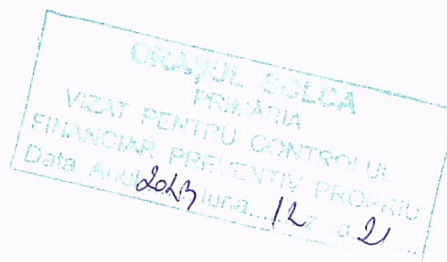 ORAȘUL SOLCA
PRIMĂRIA
VIZAT PENTRU CONTROLUL
FINANCIAR PREVENTIV PROPRIU
Data Anul 2023 luna 12 ziua 21